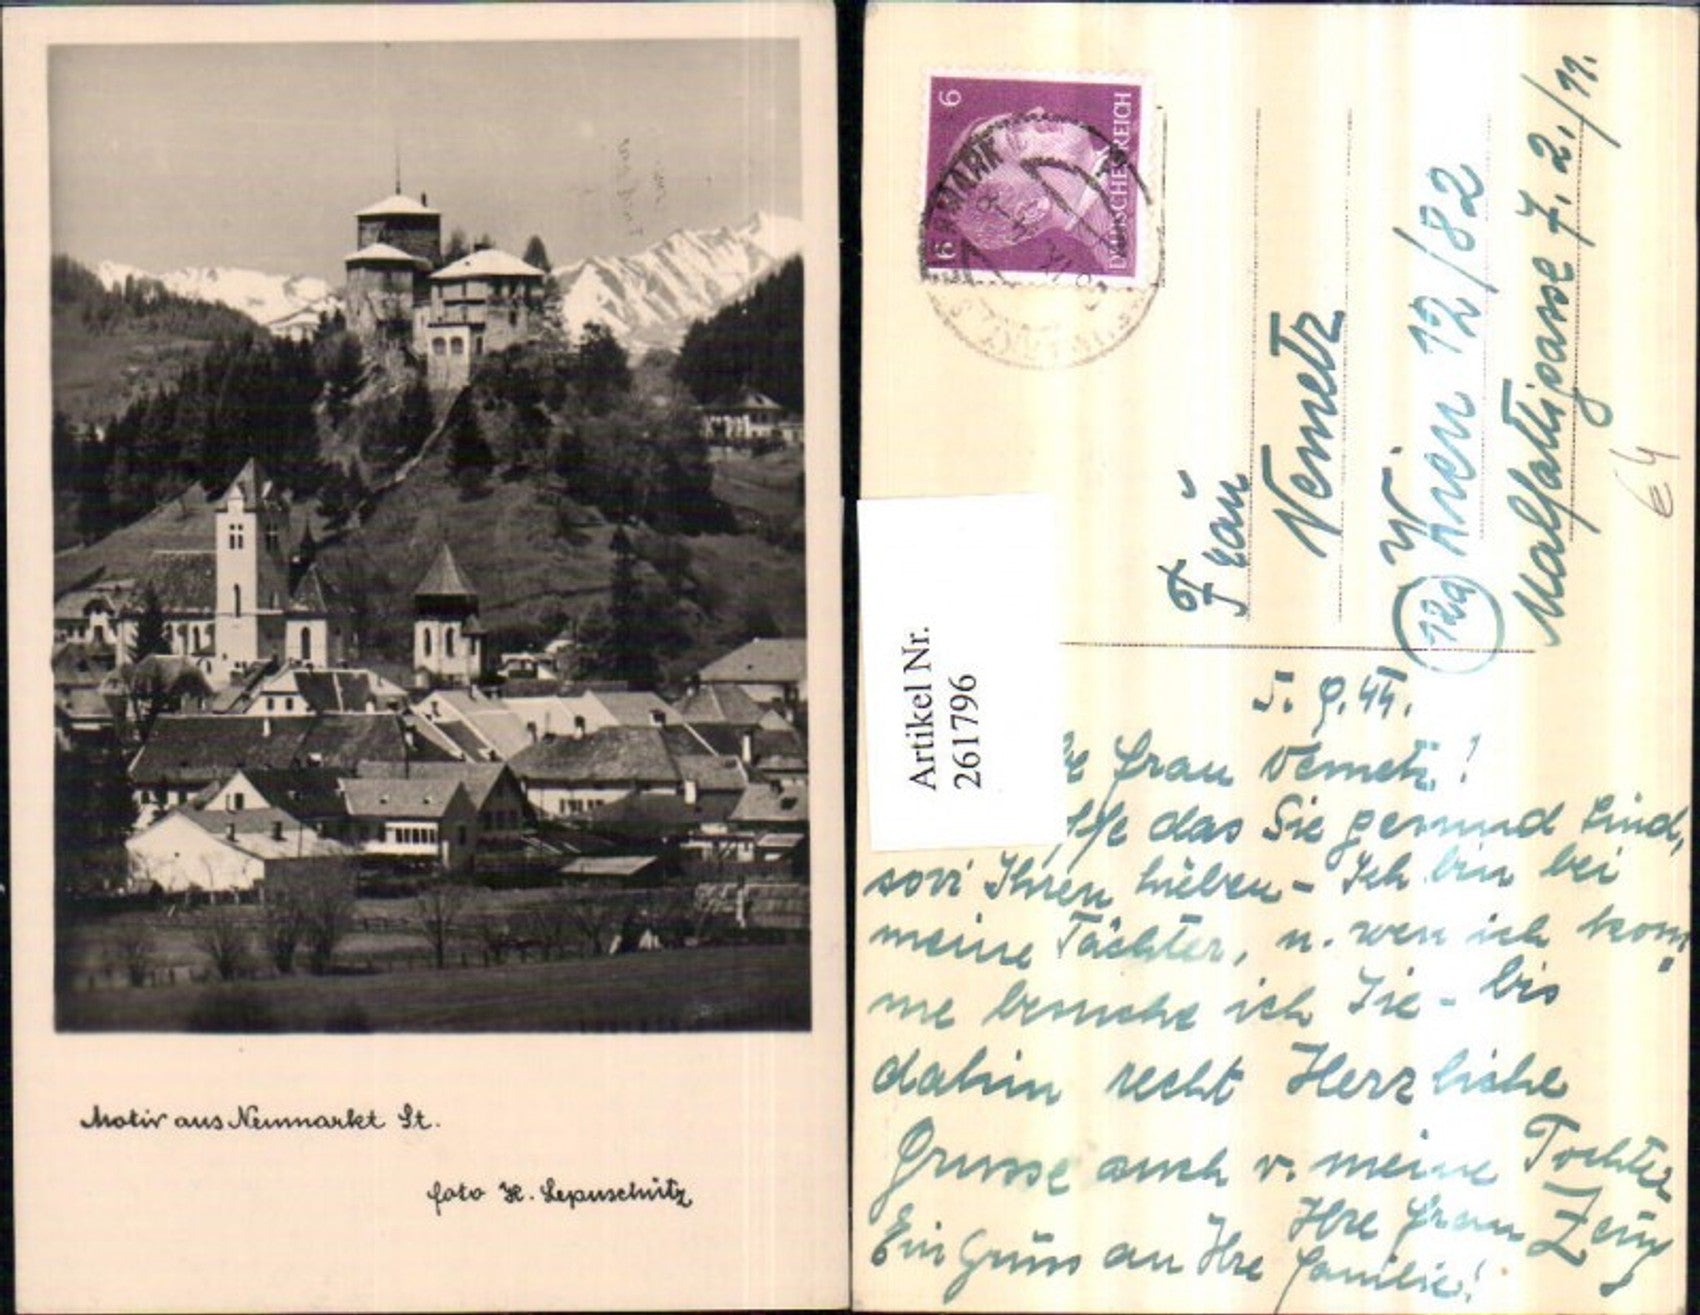 Motiv aus Neumarkt St.
foto H. Lepuschütz
6
6
DEUTSCHES REICH
Artikel Nr.
261796
Frau
Nemetz
Wien 12/82
12a
Malfattigasse 7. 2./11.
€4
5. 9. 44.
Frau Nemetz!
das Sie gesund sind,
sowi Ihren lieben - Ich bin bei
meine Töchter, u. wen ich kom
me besuche ich Sie - bis
dahin recht Herzliche
Grusse auch v. meine Tochter
Ihre Frau
Ein Gruss an Ihre Familie!